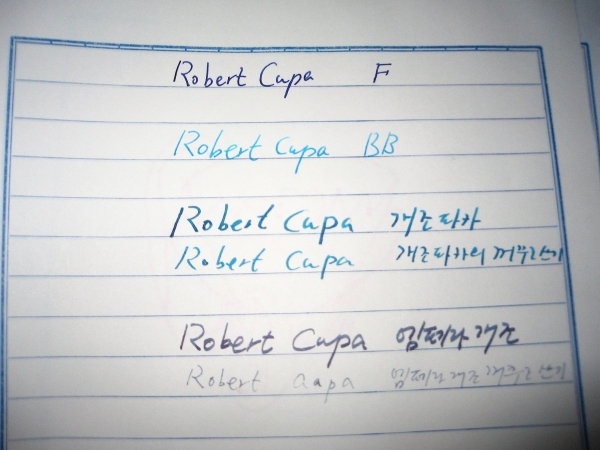 Robert Capa F
Robert Capa BB
Robert Capa 개조파카
Robert Capa 개조파카의 꺼꾸로쓰기
Robert Capa 임페라개조
Robert Capa 임페라개조꺼꾸로쓰기